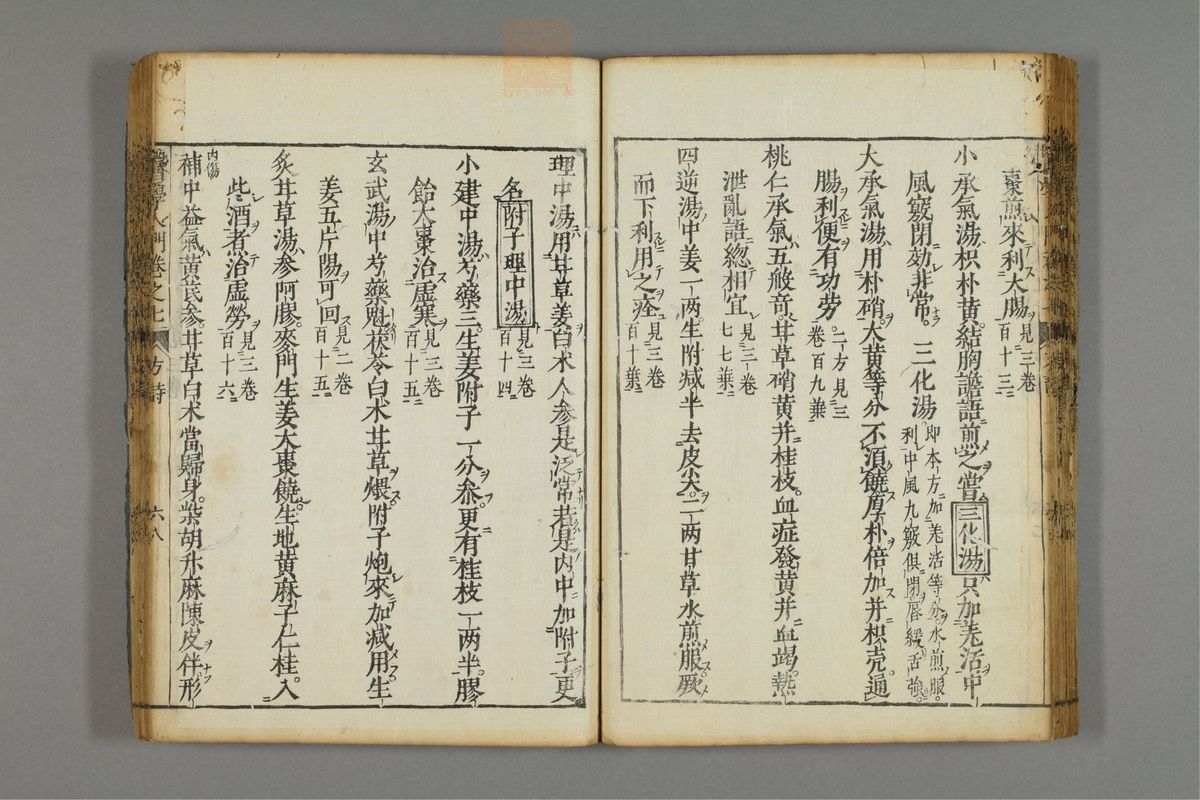 棗煎來利大腸見三卷百十三
小承氣湯枳朴黃結胸譫語煎之嘗三化湯只加羌活中
風竅閉効非常 三化湯即本方加羌活等分水煎服利中風九竅俱閉唇緩舌強
大承氣湯用朴硝大黃等分不須饒厚朴倍加并枳壳通
腸利便有功劳二方見三卷百九葉
桃仁承氣五般竒甘草硝黃并桂枝血症發黃并血竭熱
泄亂語総相宜見三卷七七葉
四逆湯中姜一兩生附減半去皮尖二兩甘草水煎服厥
而下利用之痊見三卷百十葉
理中湯用甘草姜白朮人參是泛常若是内中加附子更
名附子理中湯見三卷百十四
小建中湯芍藥三生姜附子一分叅更有桂枝一兩半膠
飴大棗治虛寒見三卷百十五
玄武湯中芍藥魁茯苓白朮甘草煨附子炮來加減用生
姜五片陽可回見二卷百十五
炙甘草湯參阿膠麥門生姜大棗饒生地黃麻子仁桂入
些酒煮治虛勞見三卷百十六
内傷
補中益氣黃芪參甘草白朮當歸身柴胡升麻陳皮伴形
醫學入門卷之七 方詩 六八